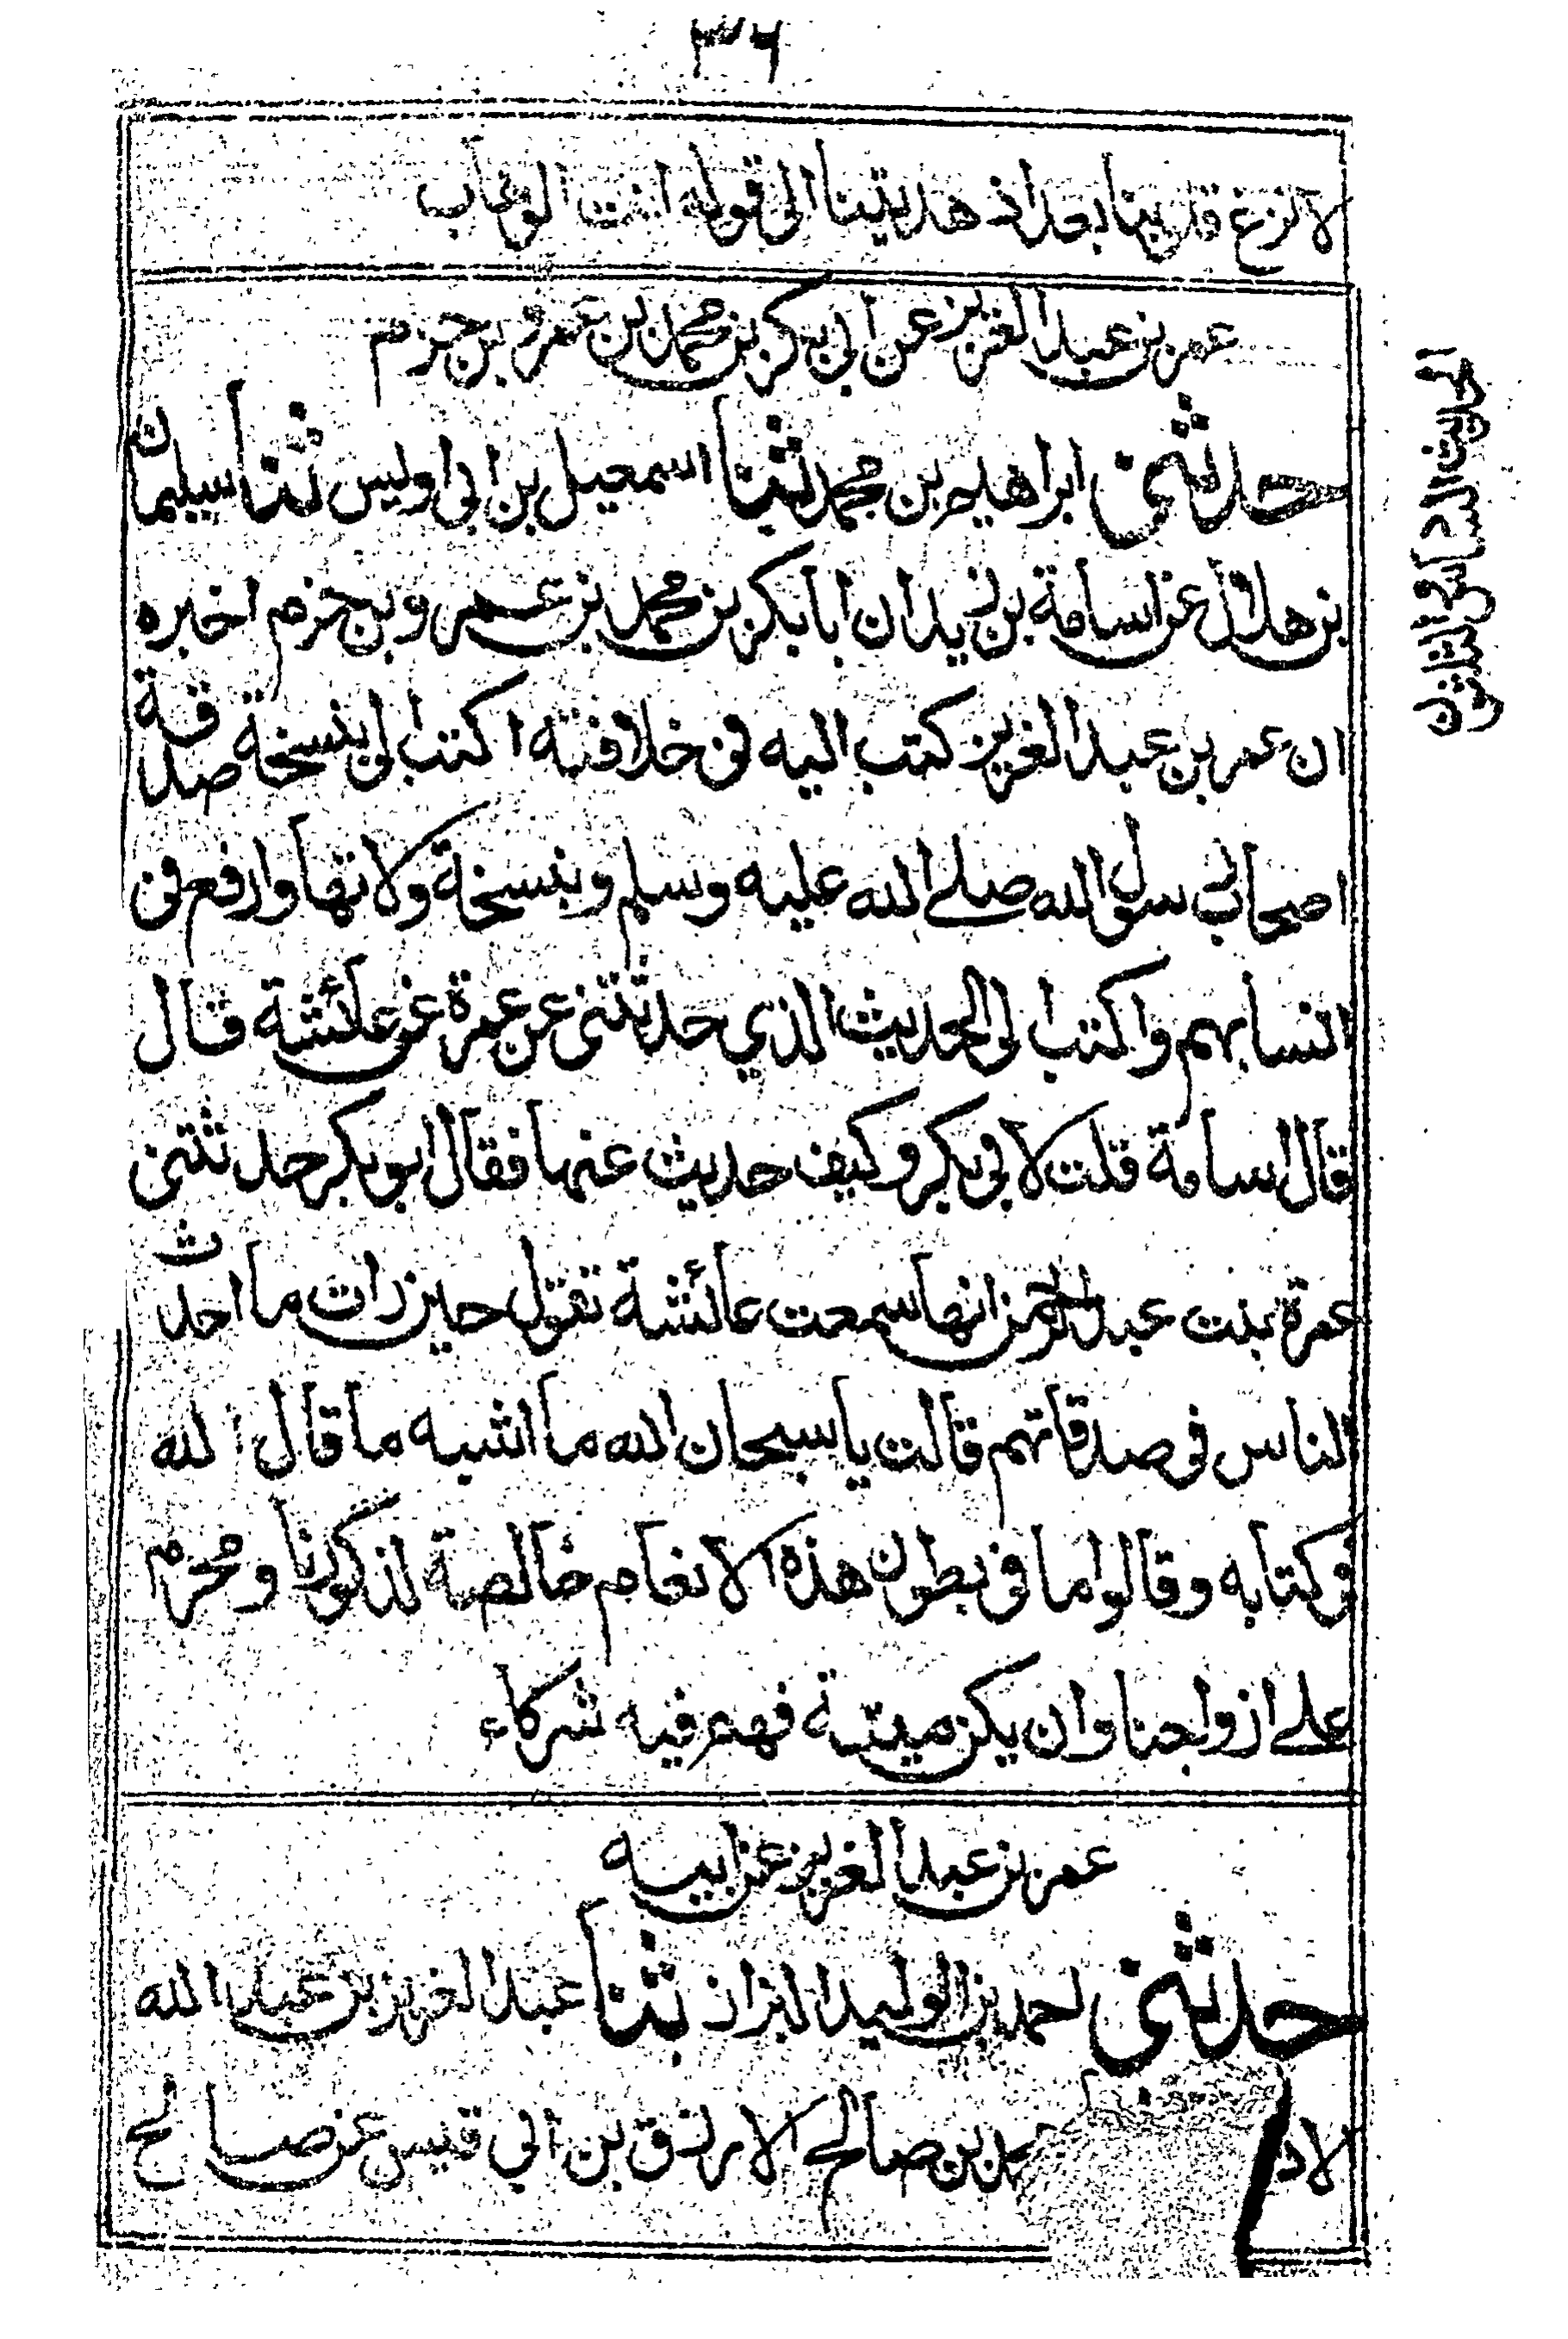 ٣٦
لا تزغ قلوبنا بعد اذ هديتنا الى قوله انت الوهاب
عمر بن عبد العزيز عن ابى بكر بن محمد بن عمرو بن حزم
حدثنى ابراهيم بن محمد ثنا اسمعيل بن ابى اويس ثنا سليمان
بن هلال عن اسامة بن زيد ان ابا بكر بن محمد بن عمرو بن حزم اخبره
ان عمر بن عبد العزيز كتب اليه فى خلافته اكتب لى بنسخة صدقة
اصحاب رسول الله صلے الله عليه وسلم وبنسخة ولاتها وارفع فى
انسابهم واكتب لى الحديث الذي حدثتنى عن عمرة عن عائشة قال
قال اسامة قلت لابى بكر وكيف حديث عنها فقال ابو بكر حدثتنى
عمرة بنت عبد الرحمن انها سمعت عائشة تقول حين رات ما احدث
الناس فى صدقاتهم قالت يا سبحان الله ما اشبه ما قال الله
فى كتابه وقالوا ما فى بطون هذه الانعام خالصة لذكورنا ومحرم
علے ازواجنا وان يكن ميتة فهم فيه شركاء
عمر بن عبد العزيز عن ابيه
حدثنى احمد بن الوليد البزاز ثنا عبد العزيز بن عبد الله
بن صالح الازرق بن ابي قيس عن صالح
الحديث السادس والثلاثون